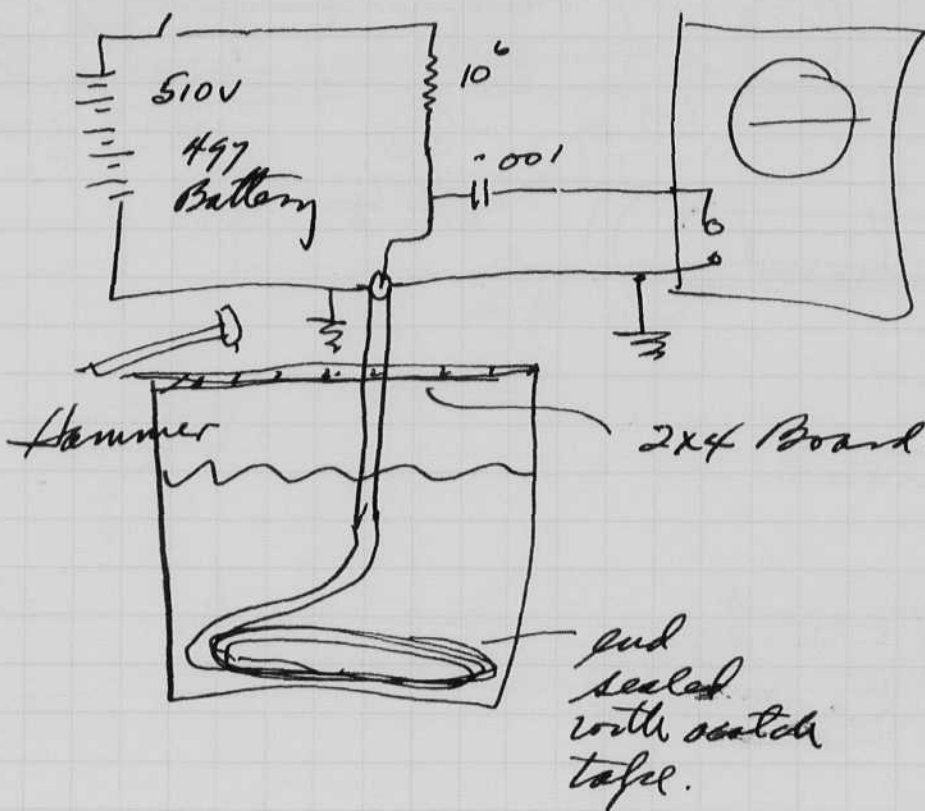 510V
497
Battery
10⁶
.001
Hammer
2x4 Board
end
sealed
with scotch
tape.